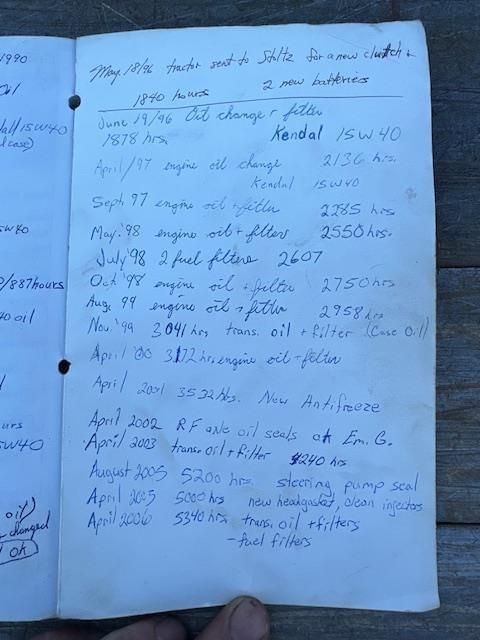 1990
Oil
all/15W40
case)
5W40
/887hours
40 oil
urs
5W40
oil)
changed
OK
May 18/96 tractor sent to Stoltz for a new clutch +
1840 hours 2 new batteries
June 19/96 Oil change + filter
1878 hrs. Kendal 15W40
April/97 engine oil change 2136 hrs.
Kendal 15W40
Sept 97 engine oil + filter 2285 hrs
May '98 engine oil + filters 2550 hrs.
July '98 2 fuel filters 2607
Oct '98 engine oil + filter 2750 hrs
Aug 99 engine oil + filter 2958 hrs
Nov. '99 3041 hrs trans. oil + filter (Case Oil)
April '00 3172 hrs engine oil + filter
April 2001 3532 hrs. New Antifreeze
April 2002 RF axle oil seals at Em. G.
April 2003 trans. oil + filter 4240 hrs
August 2005 5200 hrs. steering pump seal
April 2005 5000 hrs new headgasket, clean injectors
April 2006 5340 hrs. trans. oil + filters
- fuel filters